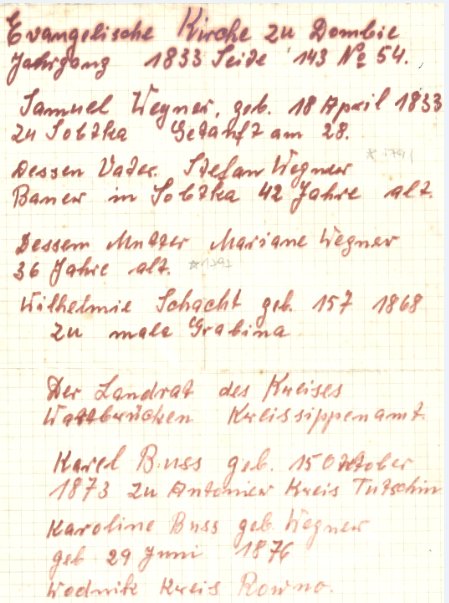 Evangelische Kirche zu Dombie
Jahrgang 1833 Seide 143 No 54.
Samuel Wegner, geb. 18 April 1833
zu Sobtka Getauft am 28.
Dessen Vader. Stefan Wegner
* 1791
Bauer in Sobtka 42 Jahre alt.
Dessem Mutter Mariane Wegner
36 Jahre alt. * 1797
Wilhelmie Schacht geb. 157 1868
zu mala Grabina
Der Landrat des Kreises
Wartbrücken Kreissippenamt.
Karel Buss geb. 15 Oktober
1873 zu Antonier Kreis Tutschin
Karoline Buss geb. Wegner
geb 29 Juni 1876
Wodnik Kreis Rowno.